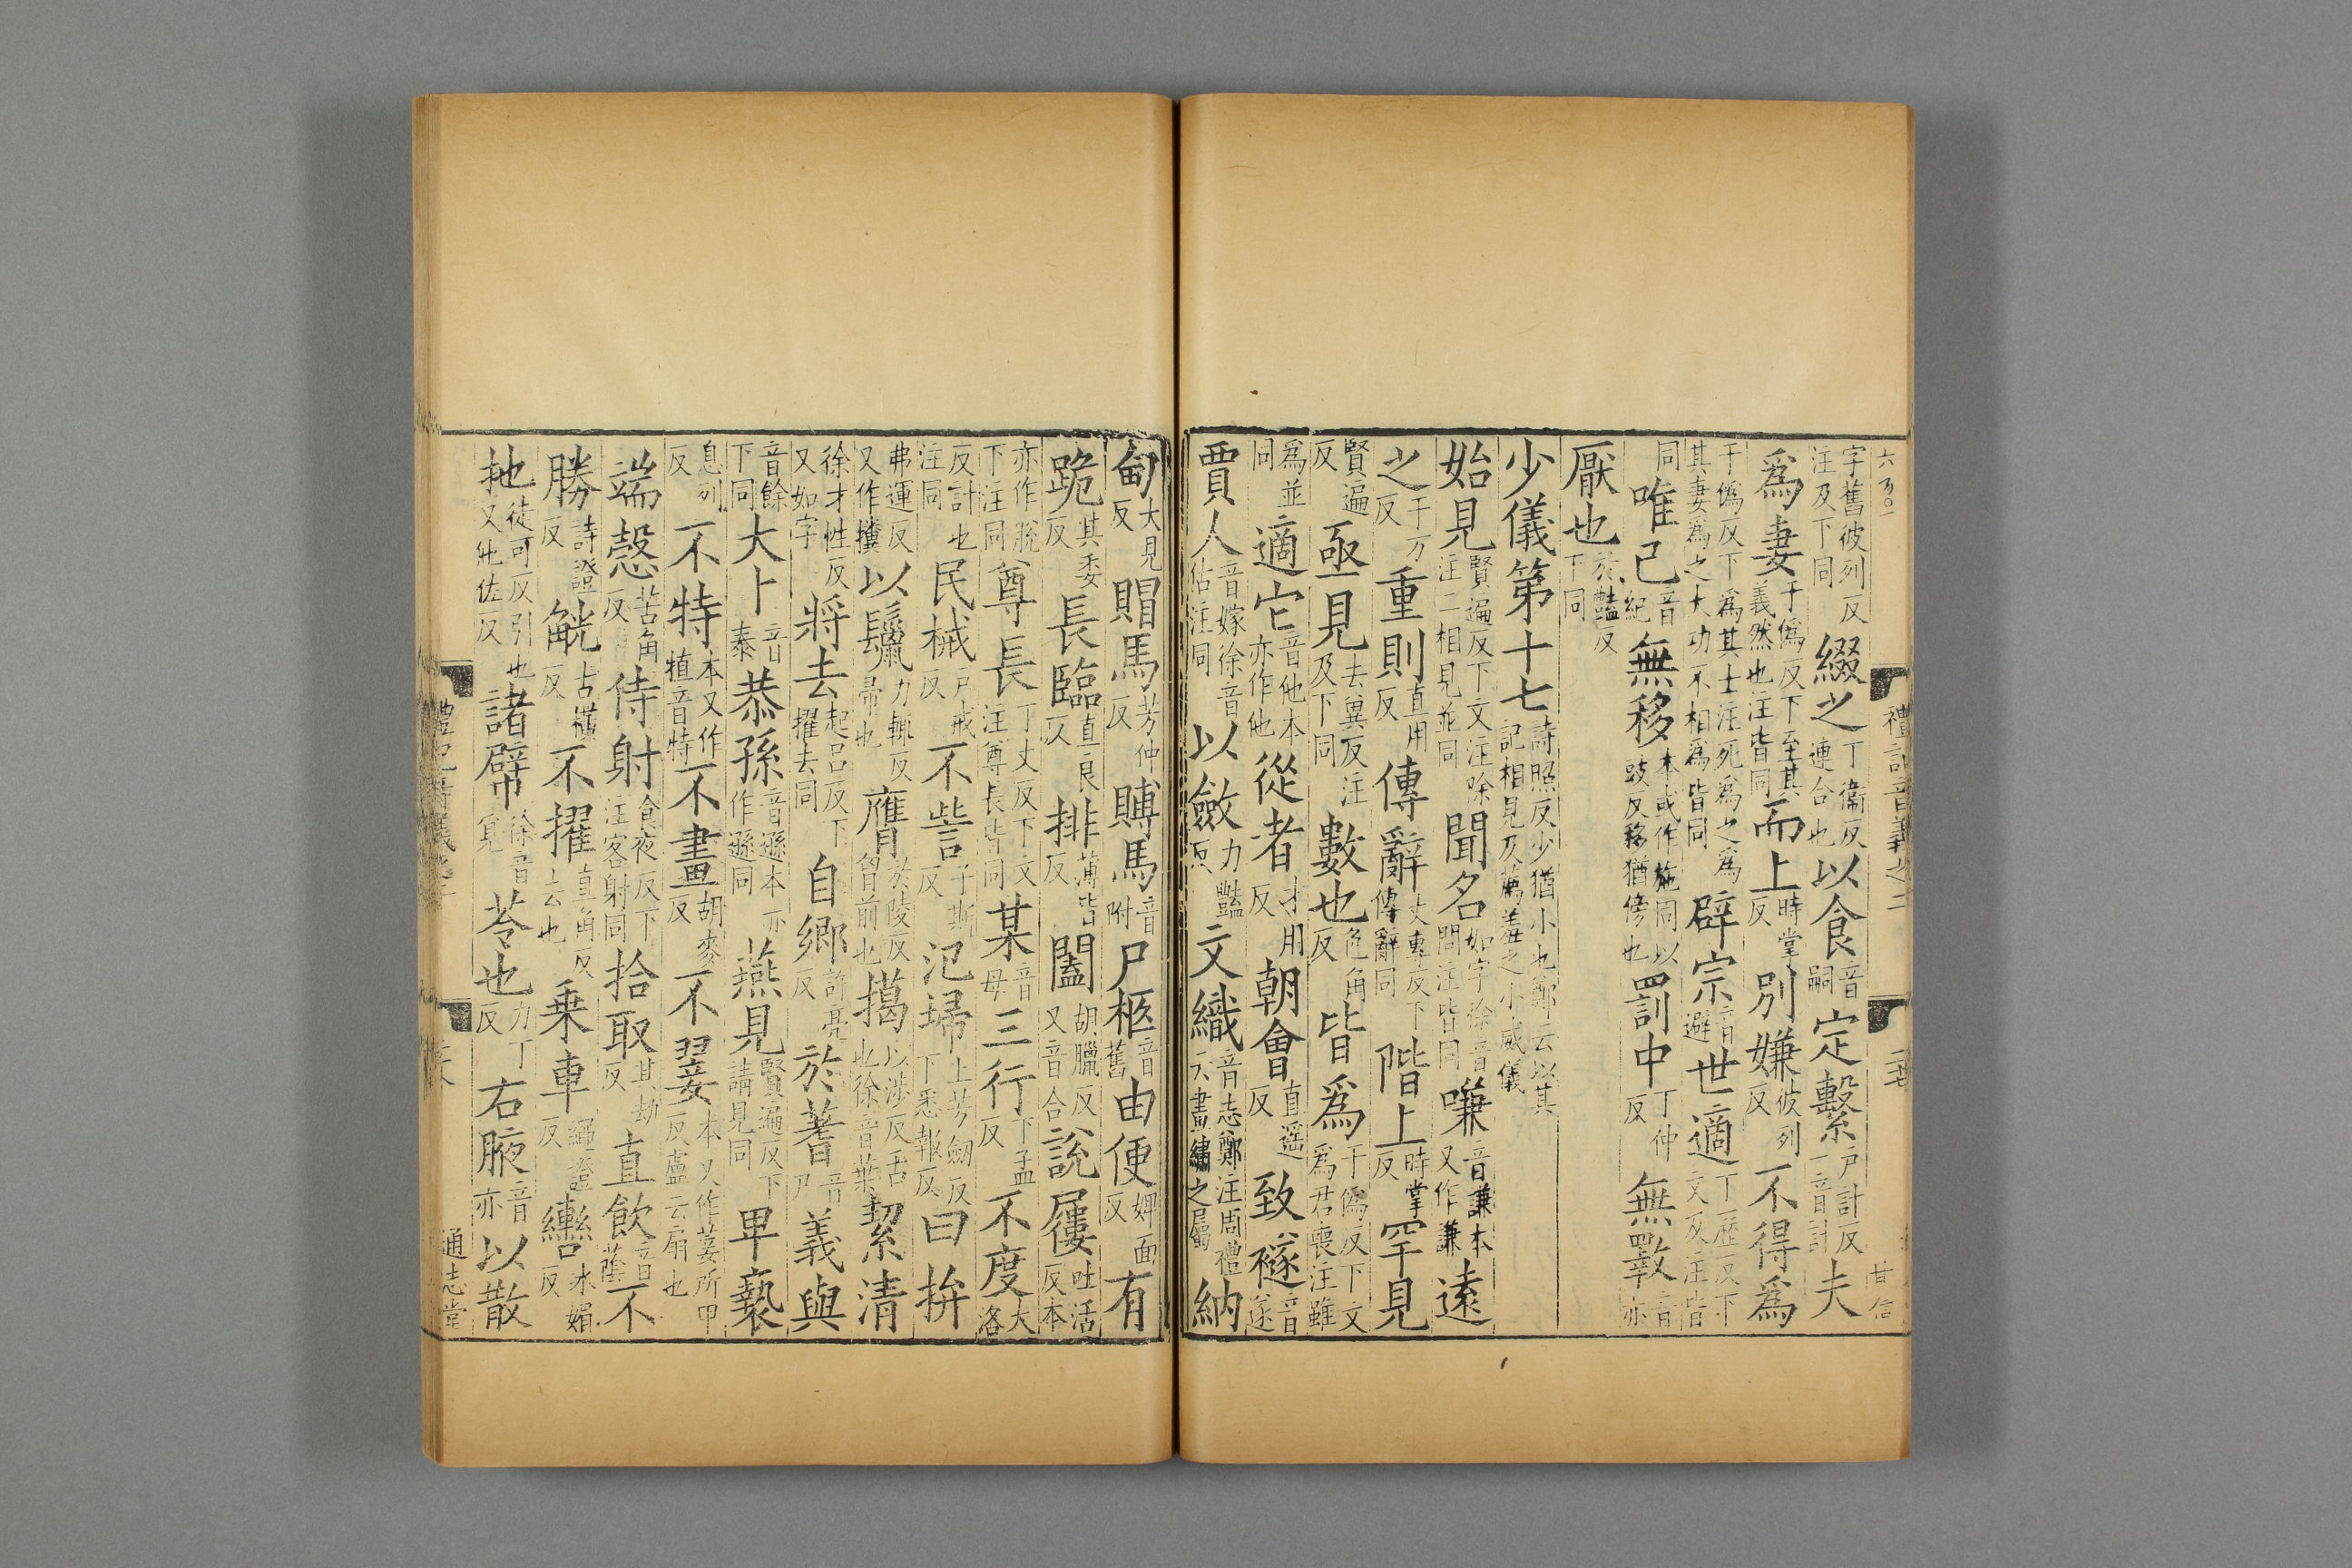 字舊彼列反注及下同綴之丁衞反連合也以食音嗣定繫戶計反一音計夫
爲妻于僞反下至其義然也注皆同而上時掌反別嫌彼列反不得爲
于僞反下爲其士注死爲之爲其妻爲之大功不相爲皆同辟宗音避世適丁歷反下文及注皆
同唯己音紀無移本或作施同以豉反移猶傍也罰中丁仲反無斁音亦
厭也於豔反下同
少儀第十七詩照反少猶小也鄭云以其記相見及薦羞之小威儀
始見賢遍反下文注除注二相見並同聞名如字徐音問注皆同嗛音謙本又作謙遠
之于万反重則直用反傳辭丈專反下傳辭同階上時掌反罕見
賢遍反亟見去冀反注及下同數也色角反皆爲于僞反下文爲君喪注雖
爲並同適它音他本亦作他從者才用反朝會直遥反致襚音遂
賈人音嫁徐音估注同以斂力豔反文織音志鄭注周禮云畫繡之屬納
甸大見反賵馬芳仲反賻馬音附尸柩音舊由便婢面反有
跪其委反長臨直艮反排薄皆反闔胡臘反又音合說屨吐活反本
亦作脫下注同尊長丁丈反下文注尊長皆同某音母三行下孟反不度大洛
反計也注同民械戶戒反不訾子斯反氾埽上芳劒反下悉報反曰拚
弗運反又作㩳以鬛力輒反帚也膺於陵反胷前也擖以涉反舌也徐音葉絜清
徐才性反又如字將去起呂反下擢去同自鄉許亮反於蓍音尸義與
音餘下同大卜音泰恭孫音遜本亦作遜同燕見賢遍反下請見同卑褻
息列反不特本又作犆音特不畫胡麥反不翣本又作萐所甲反盧云扇也
端慤苦角反侍射食夜反下注客射同拾取其劫反直飲音蔭不
勝詩證反觥古横反不擢直角反去也乗車繩證反轡冰媚反
扡徒可反引也又他佐反諸幦徐音覓苓也力丁反右腋音亦以散
禮記音義之三
通志堂